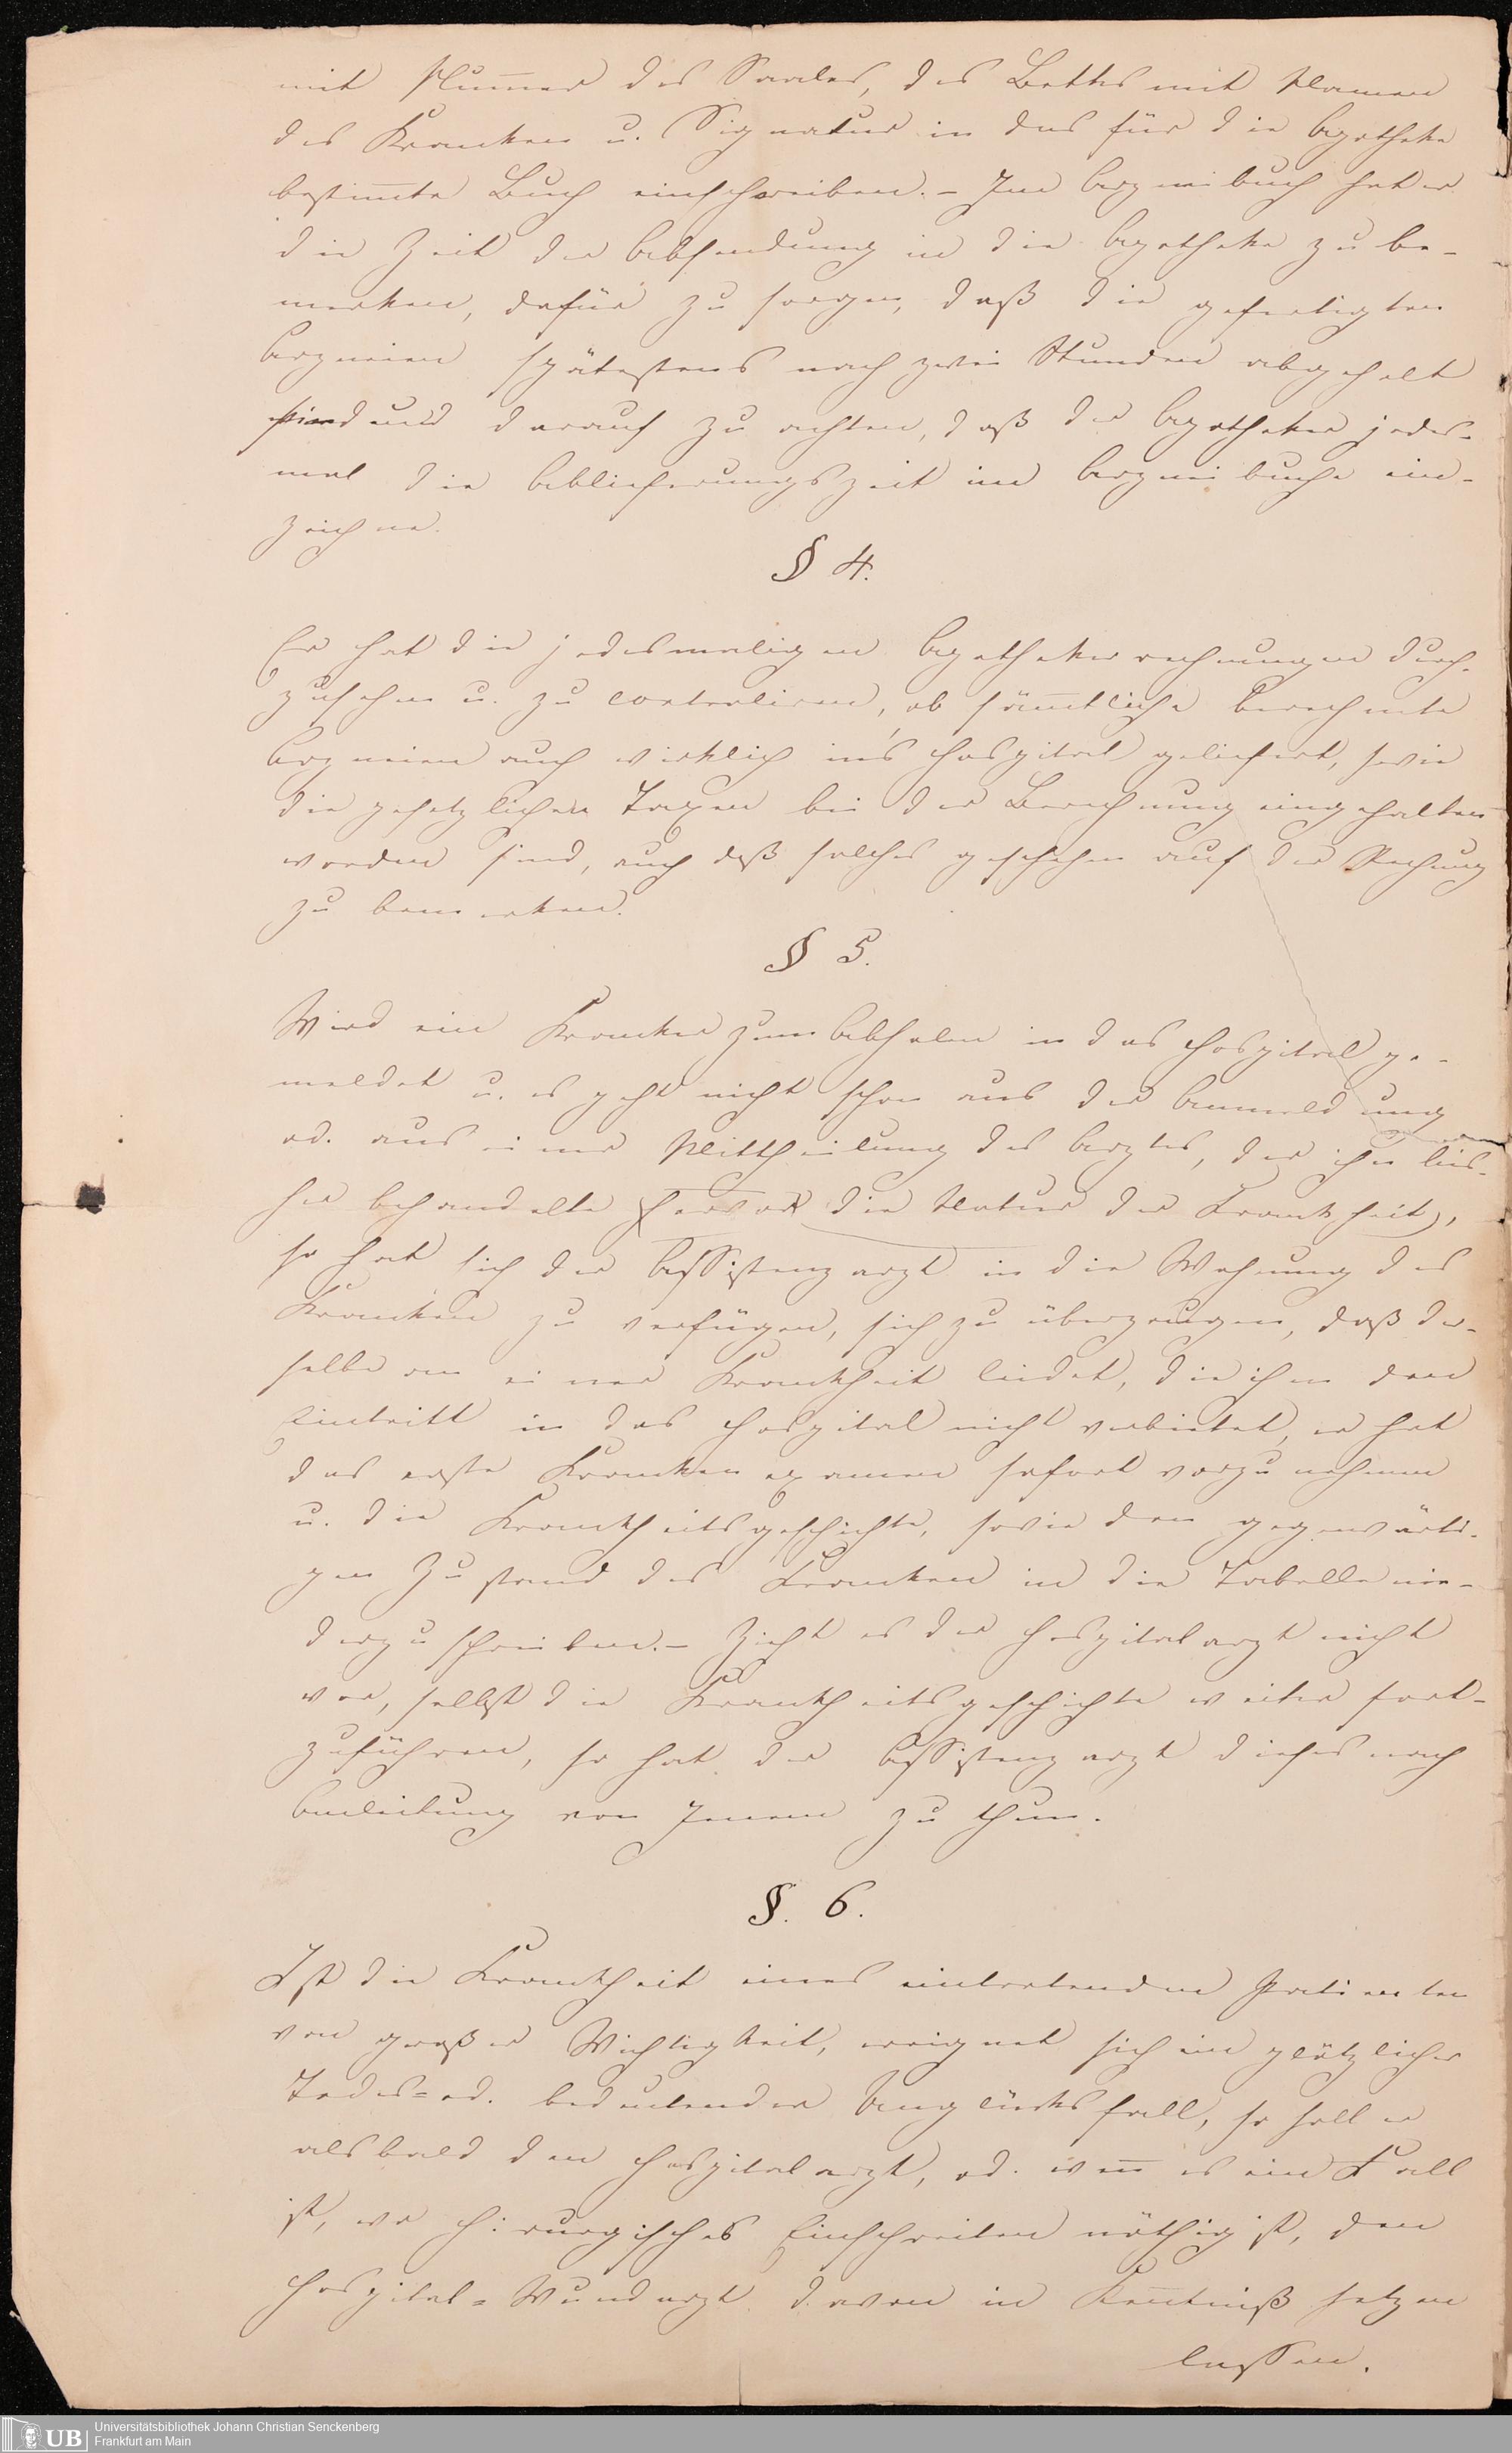 mit Num̄er des Saales, des Bettes mit Namen
des Kranken u. Signatur in das für die Apotheke
bestim̄te Buch einschreiben. – Im Arzneibuch hat er
die Zeit der Absendung in die Apotheke zu be-
merken, dafür zu sorgen, daß die gefertigten
Arzneien spätestens nach zwei Stunden abgeholt
sind und darauf zu achten, daß der Apotheker jedes-
mal die Ablieferungszeit im Arzneibuche ein-
zeichne.
§ 4.
Er hat die jedesmaligen Apothekerrechnungen durch-
zusehen u. zu controliren, ob säm̄tliche berechnete
Arzneien auch wirklich in's Hospital geliefert, sowie
die gesetzlichen Taxen bei der Berechnung eingehalten
worden sind, auch daß solches geschehen auf der Rechnung
zu bemerken.
§ 5.
Wird ein Kranker zum Abholen in das Hospital ge-
meldet u. es geht nicht schon aus der Anmeldung
od. aus einer Mittheilung des Arztes, der ihn bis-
her behandelte hervor die Natur der Krankheit,
so hat sich der Assistenzarzt in die Wohnung des
Kranken zu verfügen, sich zu überzeugen, daß der-
selbe an einer Krankheit leidet, die ihm den
Eintritt in das Hospital nicht verbietet, er hat
das erste Krankenexamen sofort vorzunehmen
u. die Krankheitsgeschichte, sowie den gegenwärti-
gen Zustand des Kranken in die Tabelle nie-
derzuschreiben. – Zieht es der Hospitalarzt nicht
vor, selbst die Krankheitsgeschichte weiter fort-
zuführen, so hat der Assistenzarzt dieses nach
Anleitung von Jenem zu thun.
§. 6.
Ist die Krankheit eines eintretenden Patienten
von großer Wichtigkeit, ereignet sich ein plötzlicher
Todes- od. bedeutender Unglücksfall, so soll er
alsbald den Hospitalarzt, od. wen̄ es ein Fall
ist, wo chirurgisches Einschreiten nöthig ist, den
Hospital-Wundarzt davon in Ken̄tniß setzen
lassen.
UB
Universitätsbibliothek Johann Christian Senckenberg
Frankfurt am Main